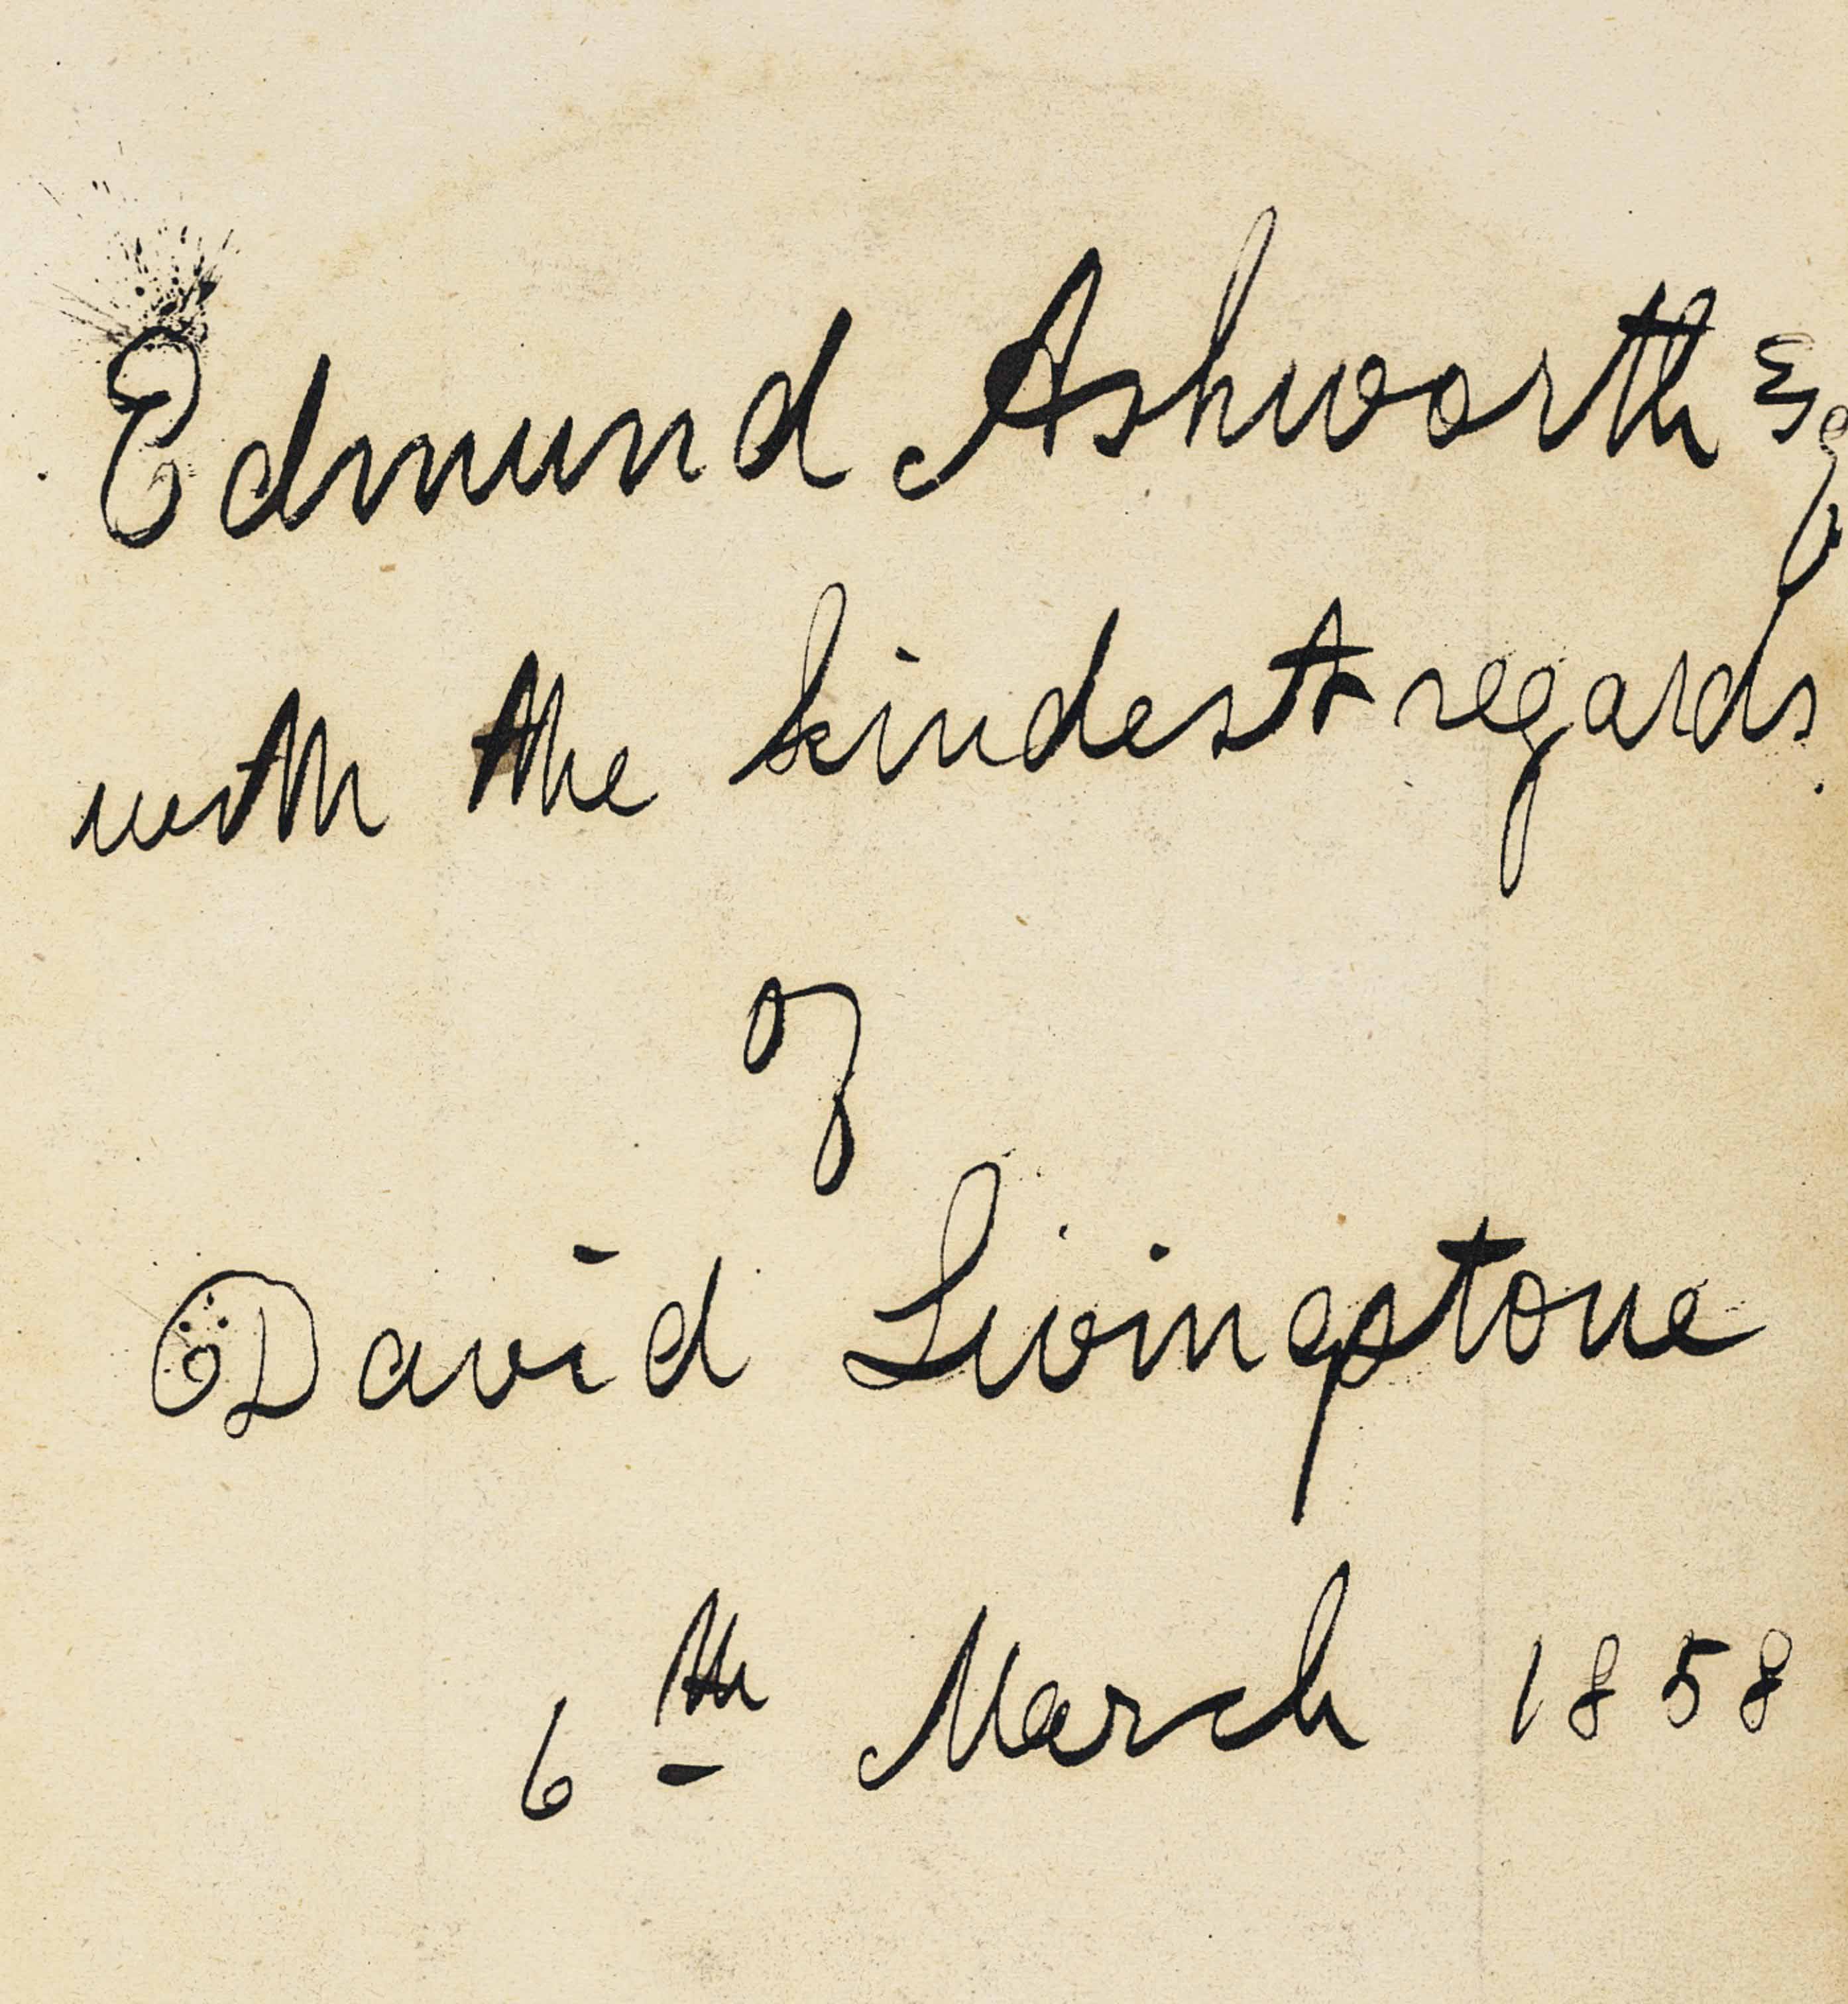 Edmund Ashworth Esq
with the kindest regards
of
David Livingstone
6th March 1858